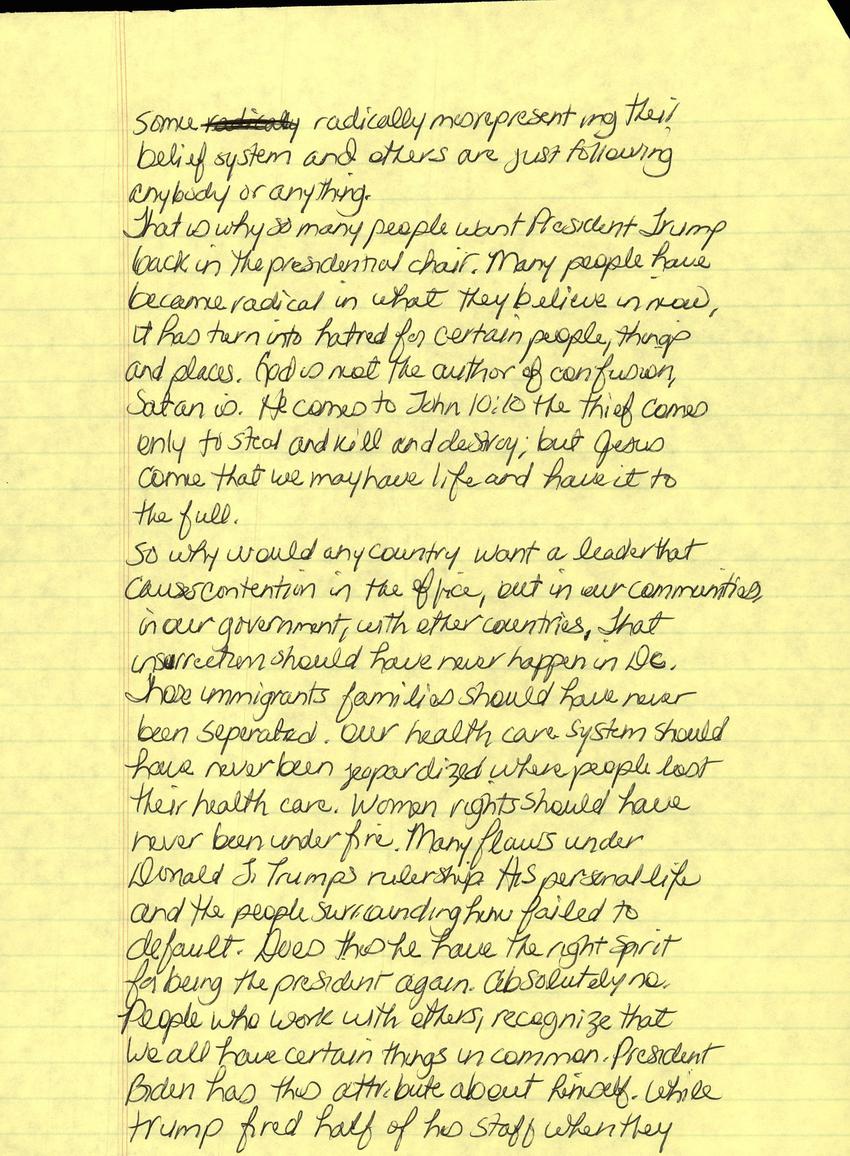 some radically radically misrepresenting their
belief system and others are just following
anybody or anything.
That is why so many people want President Trump
back in the presidential chair. Many people have
became radical in what they believe in now,
it has turn into hatred for certain people, things
and places. God is not the author of confusion,
Satan is. He comes to John 10:10 the thief comes
only to steal and kill and destroy; but Jesus
come that we may have life and have it to
the full.
So why would any country want a leader that
causes contention in the office, but in our communities,
in our government, with other countries. That
insurrection should have never happen in DC.
Those immigrants families should have never
been seperated. Our health care system should
have never been jeopardized where people lost
their health care. Women rights should have
never been under fire. Many flaws under
Donald J. Trumps rulership. His personal life
and the people surrounding him failed to
default. Does this he have the right spirit
for being the president again. Absolutely no.
People who work with others, recognize that
we all have certain things in common. President
Biden has this attribute about himself. While
trump fired half of his staff when they